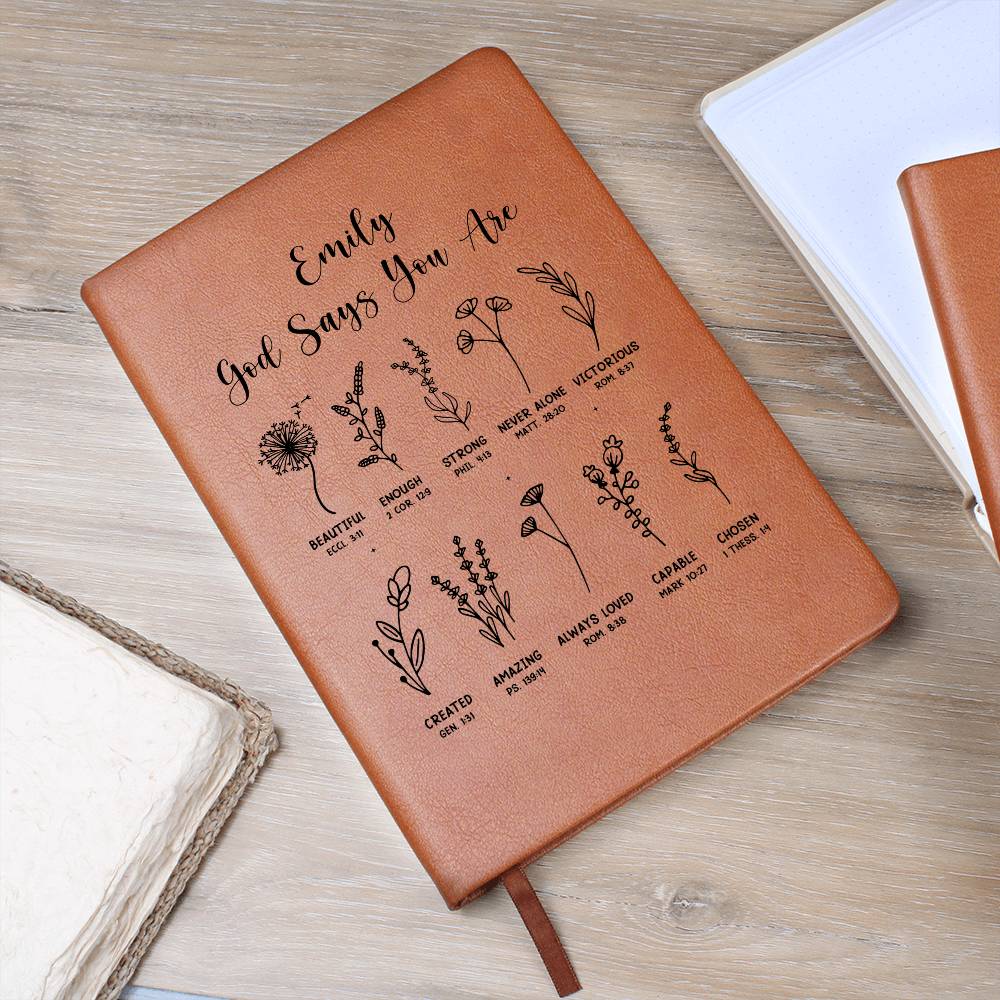 Emily
God Says You Are
BEAUTIFUL
ECCL. 3:11
ENOUGH
2 COR. 12:9
STRONG
PHIL. 4:13
NEVER ALONE
MATT. 28:20
VICTORIOUS
ROM. 8:37
CREATED
GEN. 1:31
AMAZING
PS. 139:14
ALWAYS LOVED
ROM. 8:38
CAPABLE
MARK 10:27
CHOSEN
1 THESS. 1:4